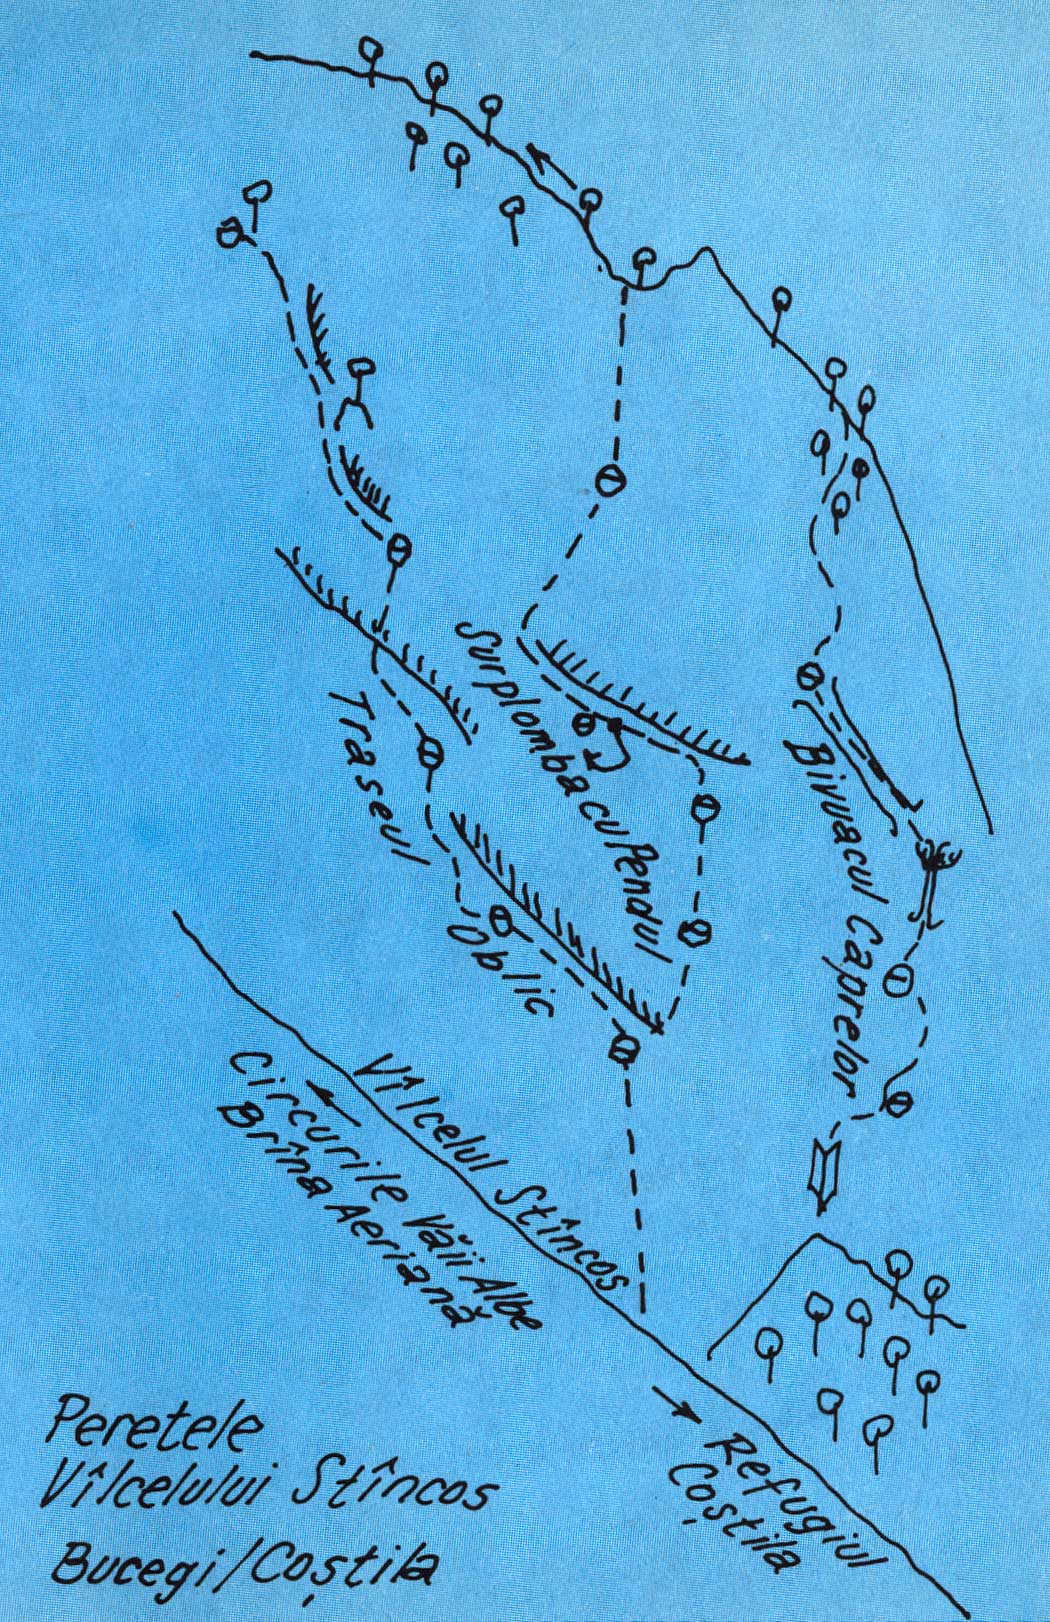 Surplomba cu Pendul
Traseul Oblic
Bivuacul Caprelor
Vîlcelul Stîncos
Circurile Văii Albe
Brîna Aeriană
Refugiul
Coștila
Peretele
Vîlcelului Stîncos
Bucegi/Coștila